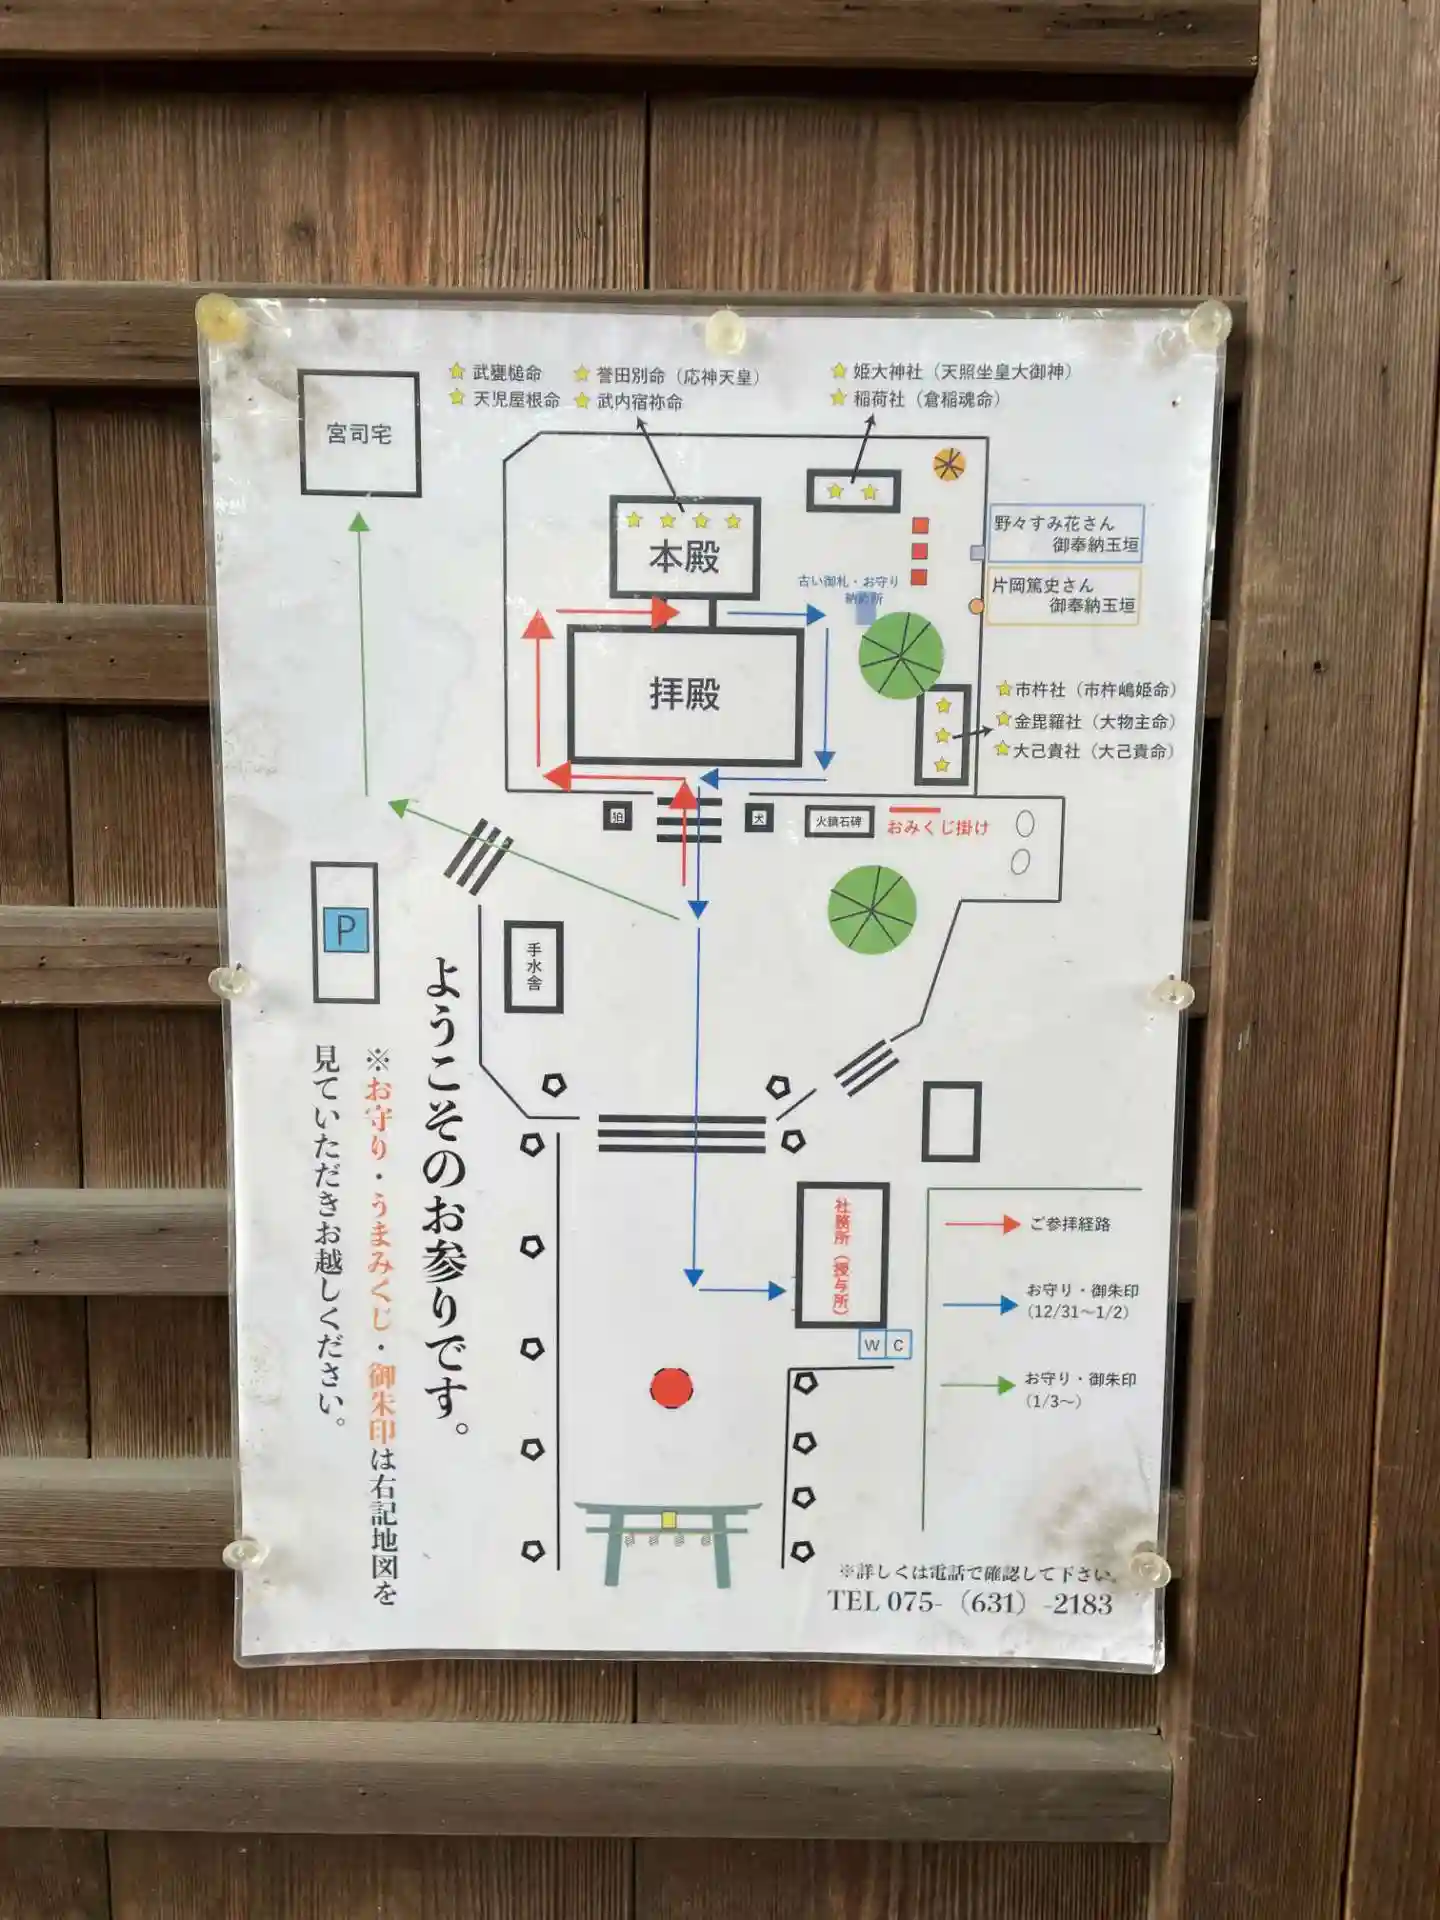 宮司宅
武甕槌命
天児屋根命
誉田別命（応神天皇）
武内宿祢命
姫大神社（天照坐皇大御神）
稲荷社（倉稲魂命）
本殿
野々すみ花さん
御奉納玉垣
片岡篤史さん
御奉納玉垣
古い御札・お守り
拝殿
市杵社（市杵嶋姫命）
金毘羅社（大物主命）
大己貴社（大己貴命）
狛
犬
火鎮石碑
おみくじ掛け
P
手水舎
ようこそのお参りです。
※お守り・うまみくじ・御朱印は右記地図を
見ていただきお越しください。
社務所（授与所）
W C
ご参拝経路
お守り・御朱印
（12/31～1/2）
お守り・御朱印
（1/3～）
※詳しくは電話で確認して下さい。
TEL 075-（631）-2183